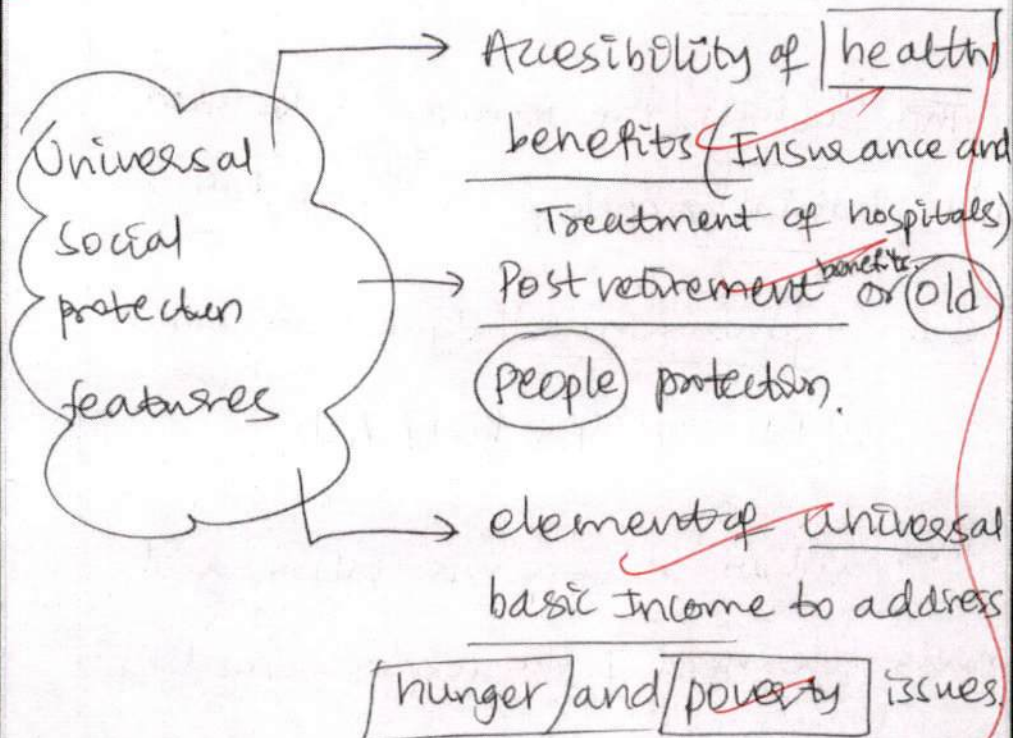 Universal
Social
protection
features
Accesibility of health
benefits (Insurance and
Treatment of hospitals)
Post retirement benefits or old
people protection.
element of universal
basic Income to address
hunger and poverty issues.